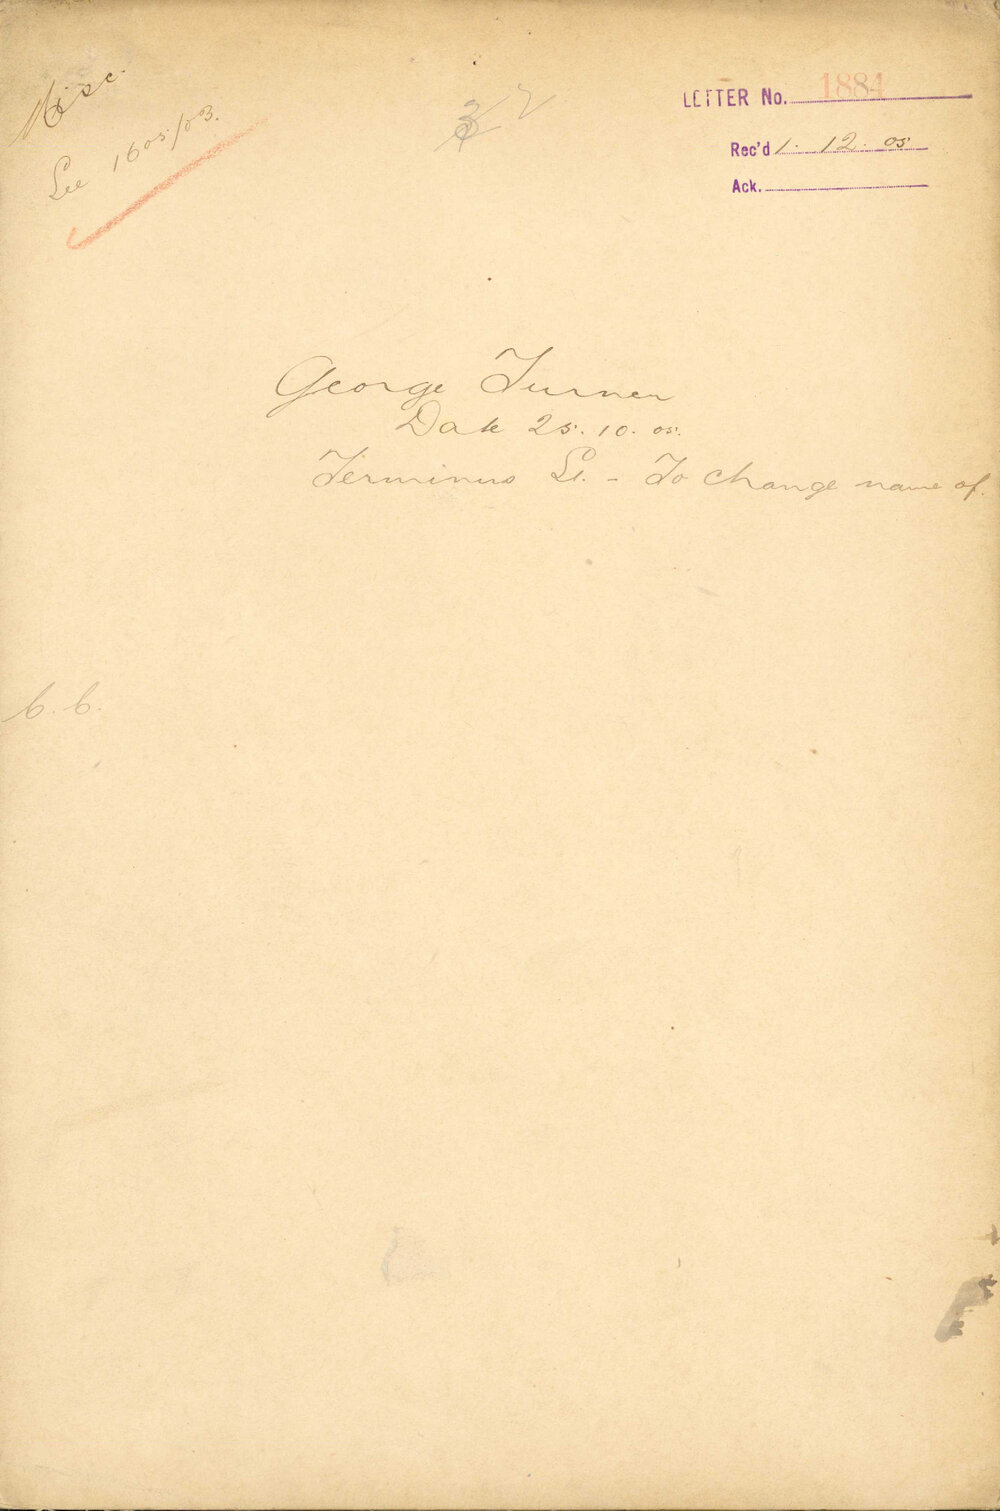 Misc.
See 1605/03.
LETTER No. 1884
Rec'd 1. 12. 05
Ack.
George Turner
Date 25. 10. 05.
Terminus St. - To change name of.